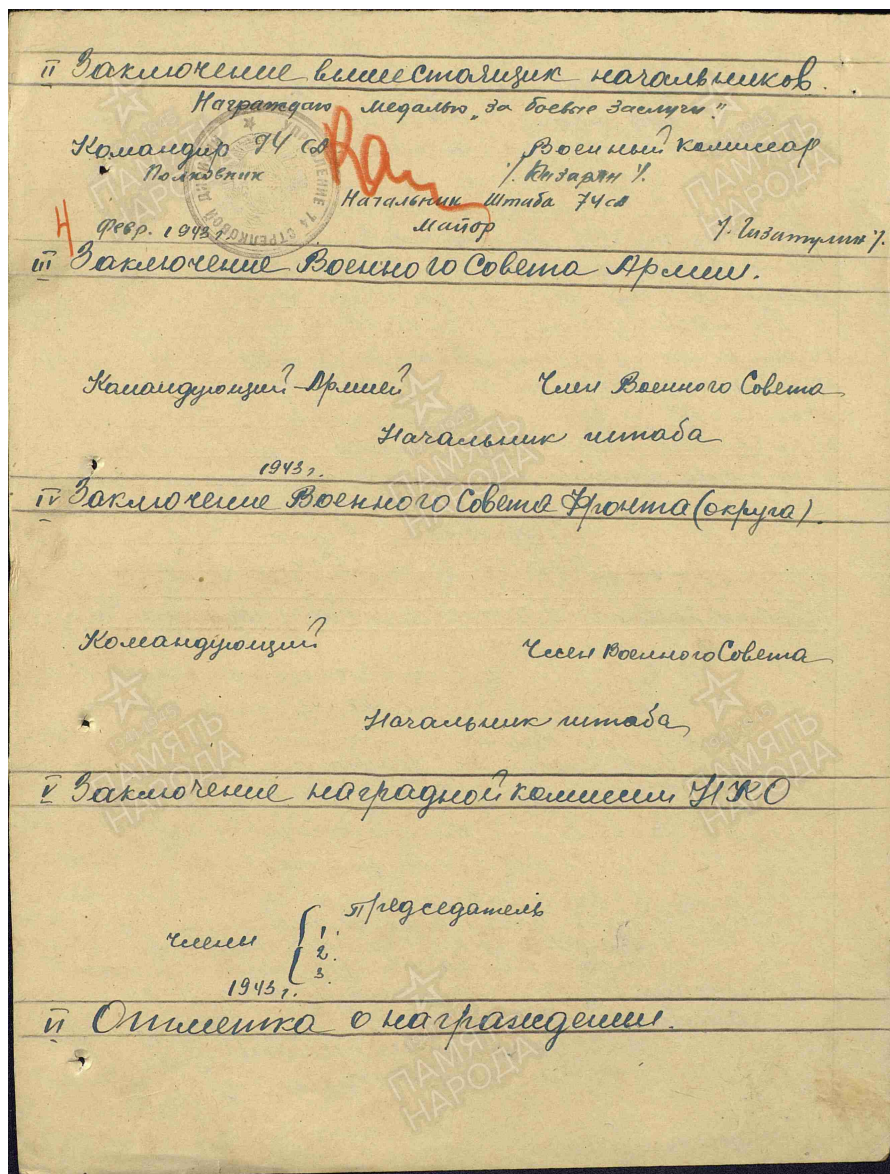 II Заключение вышестоящих начальников.
Награждаю медалью „За боевые заслуги“
Командир 74 сд Военный комиссар
Полковник /. Казарян /.
Начальник Штаба 74 сд
4 февр. 1943 г. Майор /. Гизатулин /.
УПРАВЛЕНИЕ 74 СТРЕЛКОВОЙ ДИВИЗИИ
III Заключение Военного Совета Армии.
Командующий Армией Член Военного Совета
Начальник штаба
1943 г.
IV Заключение Военного Совета Фронта (округа).
Командующий Член Военного Совета
Начальник штаба
V Заключение наградной комиссии НКО
Председатель
члены 1.
2.
3.
1943 г.
VI Отметка о награждении.
ПАМЯТЬ
НАРОДА